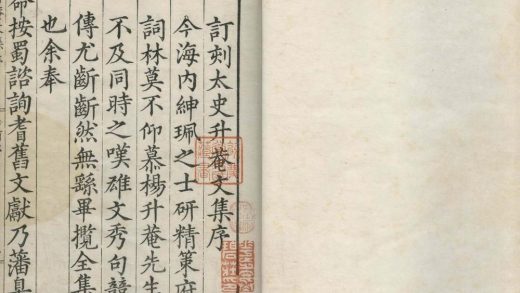 訂刻太史升菴文集序
今海内紳珮之士研精策府
詞林莫不仰慕楊升菴先生
不及同時之嘆雄文秀句語
傳尤斷斷然無繇畢攬全集
也余奉
命按蜀諮詢耆舊文獻乃藩臬